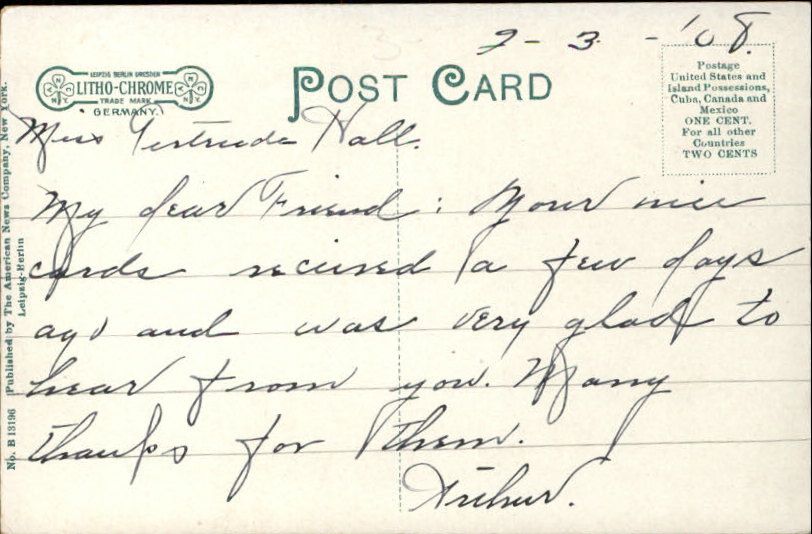 2-3-'08.
LEIPZIG BERLIN DRESDEN
LITHO-CHROME
TRADE MARK
GERMANY.
POST CARD
Postage
United States and
Island Possessions,
Cuba, Canada and
Mexico
ONE CENT.
For all other
Countries
TWO CENTS
Miss Gertrude Hall.
My dear Friend: Your nice
cards recieved a few days
ago and was very glad to
hear from you. Many
thanks for them.
Arthur.
No. B 13196 Published by The American News Company, New York.
Leipzig-Berlin